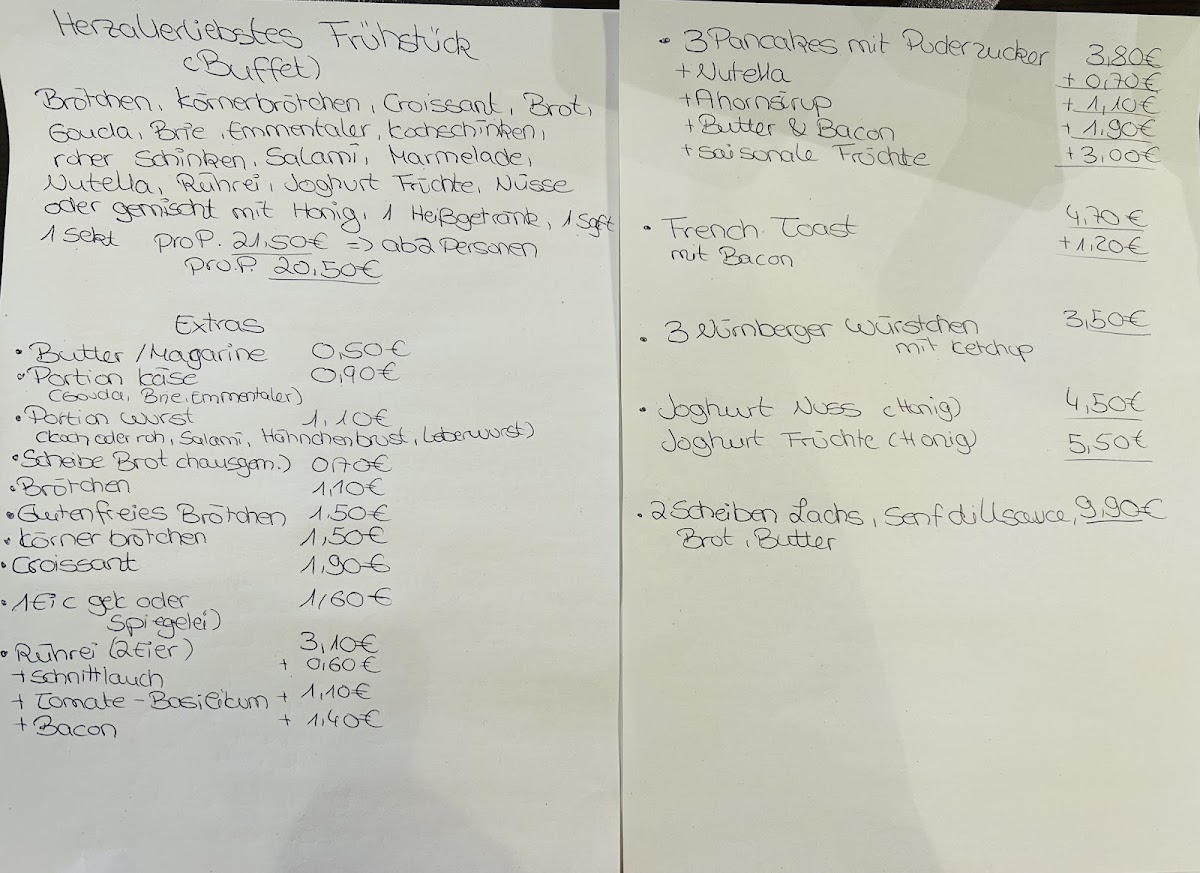 Herzallerliebstes Frühstück
(Buffet)
Brötchen, Körnerbrötchen, Croissant, Brot,
Gouda, Brie, Emmentaler, Kochschinken,
roher Schinken, Salami, Marmelade,
Nutella, Rührei, Joghurt Früchte, Nüsse
oder gemischt mit Honig, 1 Heißgetränk, 1 Saft
1 Sekt pro P. 21,50€ => ab 2 Personen
pro P. 20,50€
Extras
• Butter / Magarine 0,50€
• Portion Käse 0,90€
(Gouda, Brie, Emmentaler)
• Portion Wurst 1,10€
(Koch oder roh, Salami, Hähnchenbrust, Leberwurst)
• Scheibe Brot (hausgem.) 0,70€
• Brötchen 1,10€
• Glutenfreies Brötchen 1,50€
• Körnerbrötchen 1,50€
• Croissant 1,90€
• 1 Ei (gek oder 1,60€
Spiegelei)
• Rührei (2 Eier) 3,10€
+ Schnittlauch + 0,60€
+ Tomate-Basilikum + 1,10€
+ Bacon + 1,40€
• 3 Pancakes mit Puderzucker 3,80€
+ Nutella + 0,70€
+ Ahornsirup + 1,10€
+ Butter & Bacon + 1,90€
+ saisonale Früchte + 3,00€
• French Toast 4,70€
mit Bacon + 1,20€
• 3 Nürnberger Würstchen 3,50€
mit Ketchup
• Joghurt Nuss (Honig) 4,50€
Joghurt Früchte (Honig) 5,50€
• 2 Scheiben Lachs, Senfdillsauce, 9,90€
Brot, Butter